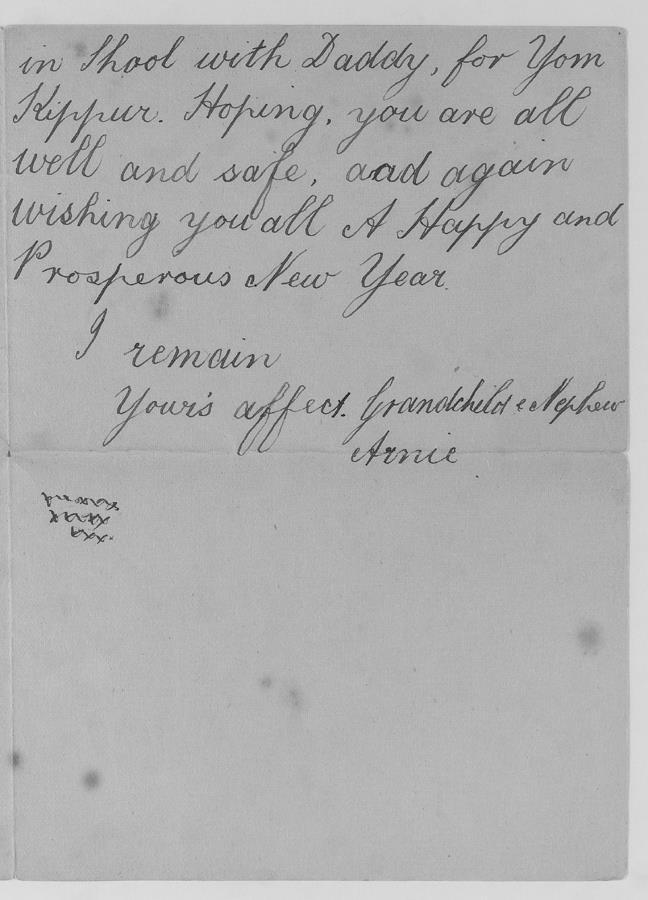 in Shool with Daddy, for Yom
Kippur. Hoping, you are all
well and safe, aad again
wishing you all A Happy and
Prosperous New Year.
I remain
Your's affect. Grandchild & Nephew
Arnie